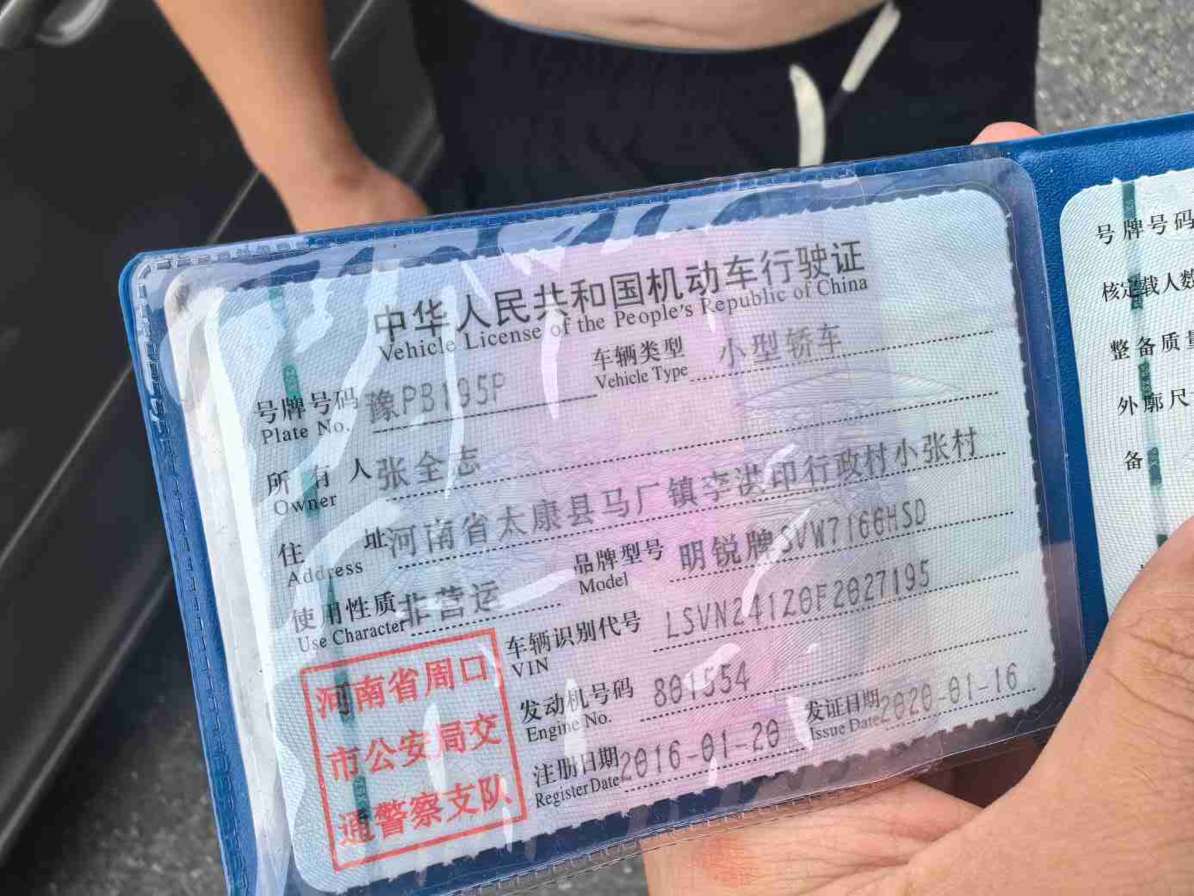 中华人民共和国机动车行驶证
Vehicle License of the People's Republic of China
号牌号码 豫PB195P 车辆类型 小型轿车
Plate No. Vehicle Type
所有人 张全志
Owner
住址 河南省太康县马厂镇李洪印行政村小张村
Address
使用性质 非营运 品牌型号 明锐牌SVW7166HSD
Use Character Model
车辆识别代号 LSVN241Z0F2027195
VIN
发动机号码 801554
Engine No.
注册日期 2016-01-20 发证日期 2020-01-16
Register Date Issue Date
河南省周口
市公安局交
通警察支队
号牌号码
核定载人数
整备质量
外廓尺
备